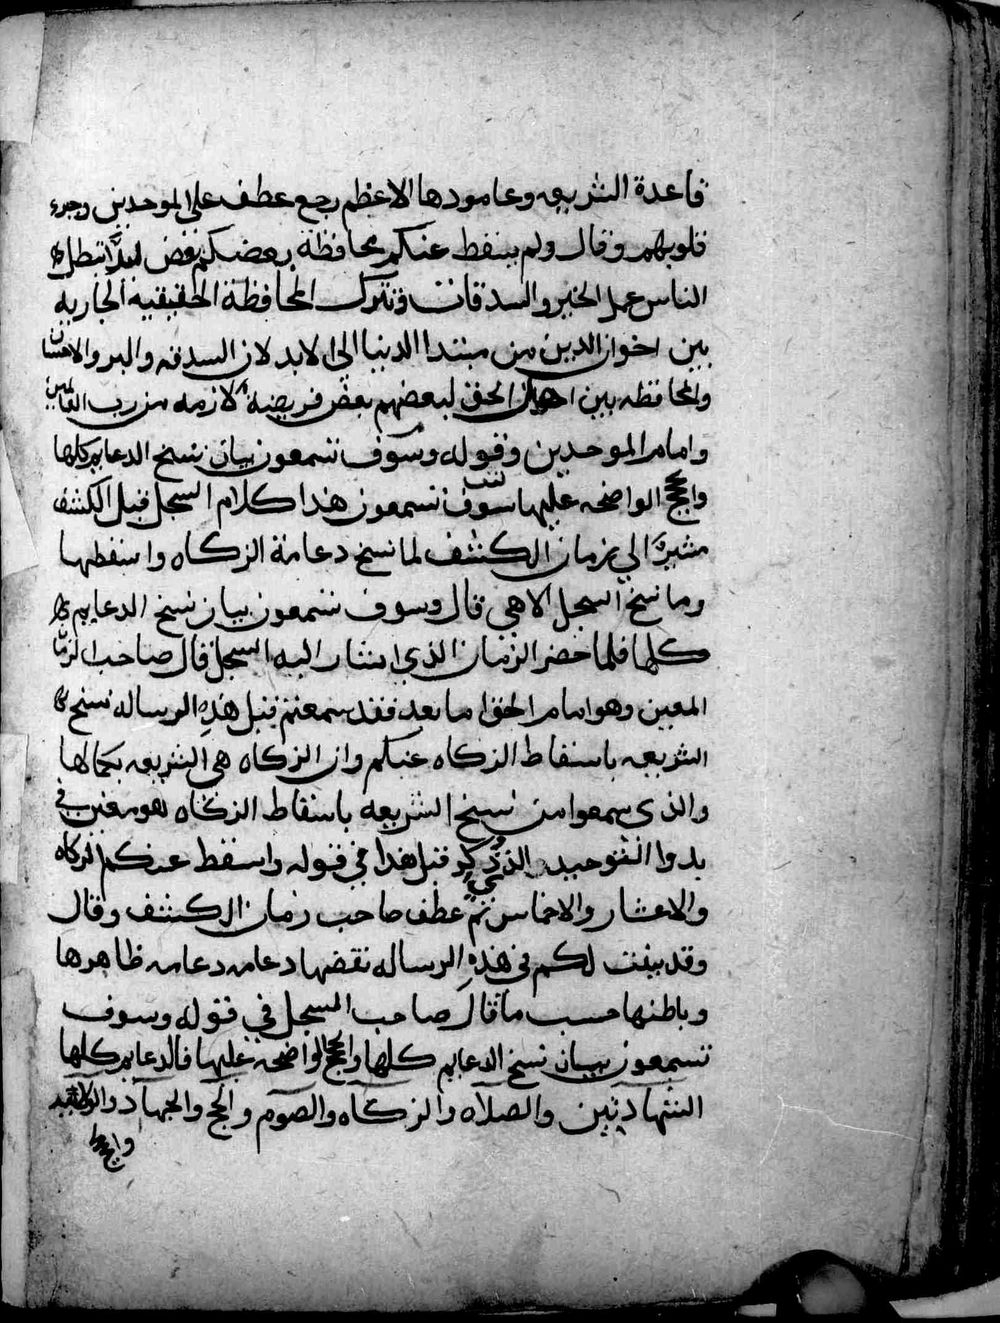 قاعدة الشريعه وعامودها الاعظم رجع عطف على الموحدين وجبر
قلوبهم وقال ولم يسقط عنكم محافظة بعضكم بعض ليلا تبطل
الناس عمل الخير والسدقات وتترك المحافظة الحقيقيه الجاريه
بين اخوان الدين من مبتدا الدنيا الى الابد لان السدقه والبر والاحسان
والمحافظه بين اهل الحق لبعضهم بعض فريضه لازمه من رب العالمين
وامام الموحدين وقوله وسوف تسمعون بيان نسخ الدعايم كلها
والحجج الواضحه عليها سوف تسمعون هذا كلام السجل قبل الكشف
مشيرًا الي زمان الكشف لما نسخ دعامة الزكاه واسقطها
وما نسخ السجل الاهي قال وسوف تسمعون بيان نسخ الدعايم
كلها فلما حضر الزمان الذي اشار اليه السجل قال صاحب الزمان
المعين وهو امام الحق اما بعد فقد سمعتم قبل هذه الرساله نسخ
الشريعه باسقاط الزكاه عنكم وان الزكاه هي الشريعه بكمالها
والذي سمعوا من نسخ الشريعه باسقاط الزكاه هو معنى في
بدوا التوحيد الذي ذكر قبل هذا في قوله واسقط عنكم الزكاه
والاعشار والاخماس ثم عطف صاحب زمان الكشف وقال
وقد بينت لكم في هذه الرساله نقضها دعامه دعامه ظاهرها
وباطنها حسب ما قال صاحب السجل في قوله وسوف
تسمعون بيان نسخ الدعايم كلها والحجج الواضحه عليها فالدعايم كلها
الشهادتين والصلاه والزكاه والصوم والحج والجهاد والولايه